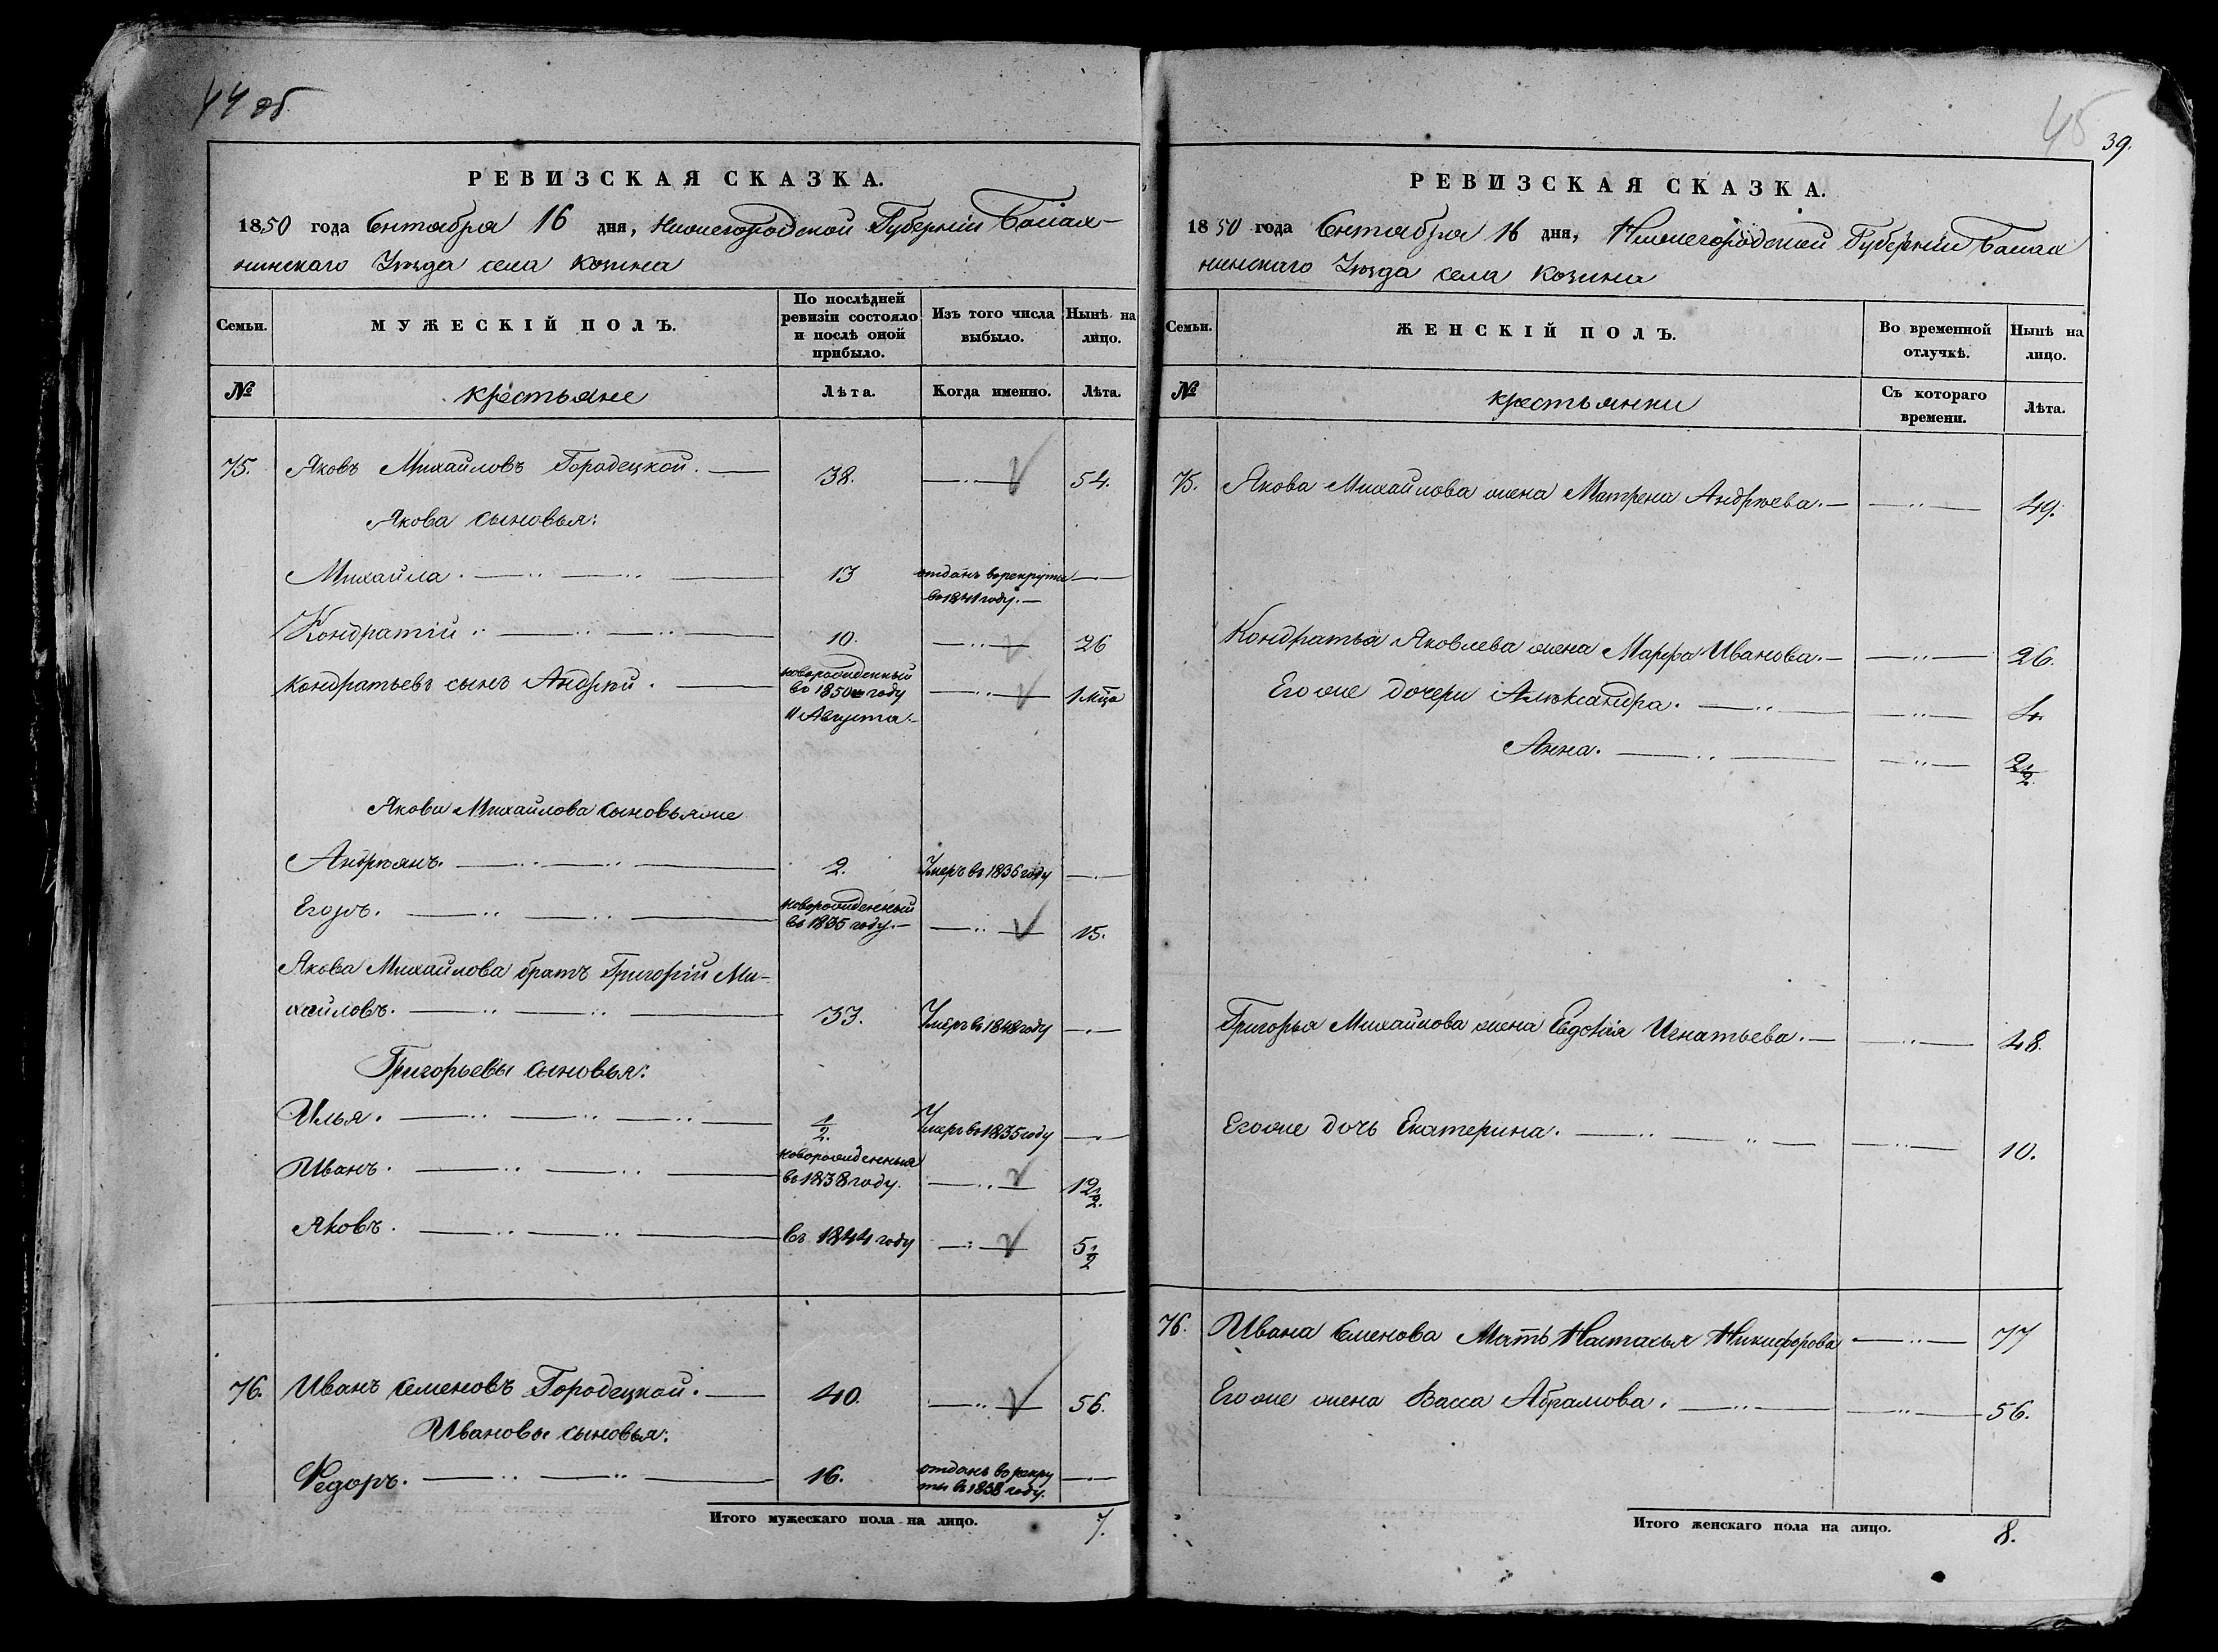 44 об.
РЕВИЗСКАЯ СКАЗКА.
1850 года Сентября 16 дня, Нижегородской Губерніи Балах-
нинскаго Уѣзда села Козина
Семьи.
МУЖЕСКІЙ ПОЛЪ.
По послѣдней ревизіи состояло и послѣ оной прибыло.
Изъ того числа выбыло.
Нынѣ на лицо.
№
крестьяне
Лѣта.
Когда именно.
Лѣта.
75. Яковъ Михайловъ Городецкой. 38. 54.
Якова сыновья:
Михайла. 13 отданъ в рекруты
в 1841 году.
Кондратій 10. 26
Кондратьевъ сынъ Андрѣй. новорожденный 1 м-ца
в 1850м году
11 Августа.
Якова Михайлова сыновья же
Андреянъ. 2. Умеръ в 1836 году
Егоръ. новорожденный 15.
в 1835 году.
Якова Михайлова братъ Григорій Ми-
хайловъ. 33. Умеръ в 1848 году
Григорьевы сыновья:
Илья. 1/2. Умеръ в 1835 году
Иванъ. новорожденныя 12 1/2.
в 1838 году.
Яковъ. въ 1844 году 5 1/2
76. Иванъ Семеновъ Городецкой. 40. 56.
Ивановы сыновья:
Федоръ. 16. отданъ в рекру
ты в 1838 году.
Итого мужескаго пола на лицо. 7.
45
39.
РЕВИЗСКАЯ СКАЗКА.
1850 года Сентября 16 дня, Нижегородской Губерніи Балах
нинскаго Уѣзда села Козина
Семьи.
ЖЕНСКІЙ ПОЛЪ.
Во временной отлучкѣ.
Нынѣ на лицо.
№
крестьянки
Съ котораго времени.
Лѣта.
75. Якова Михайлова жена Матрена Андрѣева. 49.
Кондратья Яковлева жена Марфа Иванова. 26.
Его же дочери Александра. 4.
Анна. 2 1/2.
Григорья Михайлова жена Евдокія Игнатьева. 48.
Его же дочь Екатерина. 10.
76. Ивана Семенова Мать Настасья Никифорова 77
Его же жена Васса Абрамова. 56.
Итого женскаго пола на лицо. 8.